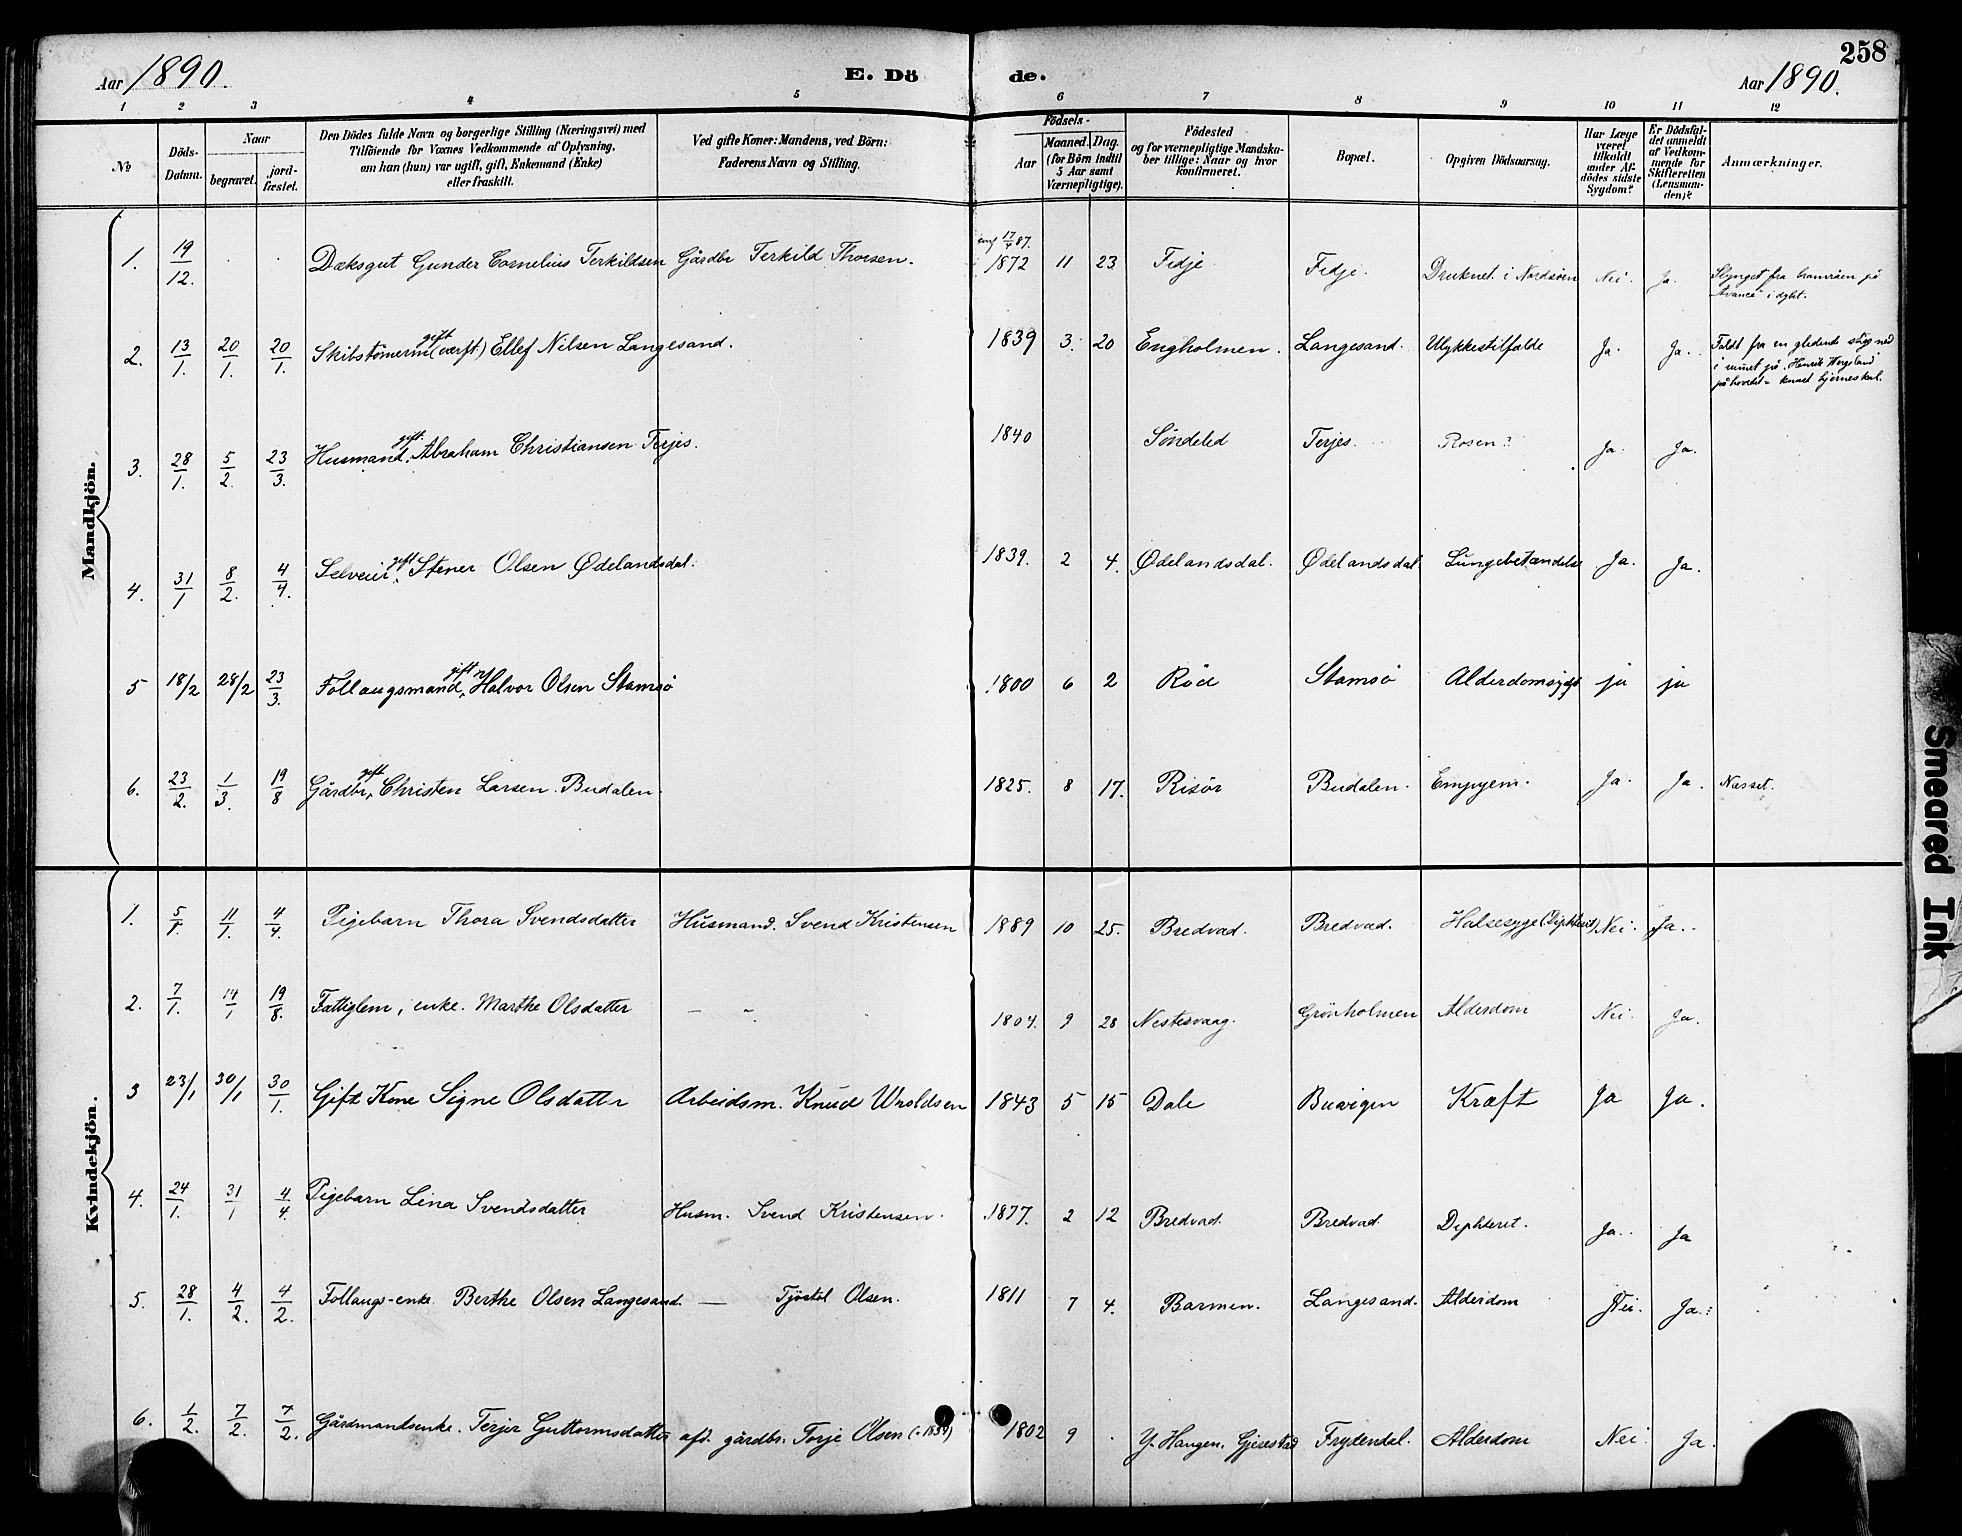 258
Aar 1890. E. Dö de. Aar 1890.
1 2 3 4 5 6 7 8 9 10 11 12
No
Döds-Datum.
Naar
begravet. jord-fæstet.
Den Dödes fulde Navn og borgerlige Stilling (Næringsvei) med
Tilföiende for Voxnes Vedkommende af Oplysning,
om han (hun) var ugift, gift, Enkemand (Enke)
eller fraskilt.
Ved gifte Koner: Mandens, ved Börn:
Faderens Navn og Stilling.
Födsels-
Aar
Maaned. Dag.
(for Börn indtil
5 Aar samt
Værnepligtige).
Födested
og for værnepligtige Mandska-
ber tillige: Naar og hvor
konfirmeret.
Bopæl.
Opgiven Dödsaarsag.
Har Læge
været
tilkaldt
under Af-
dödes sidste
Sygdom?
Er Dödsfal-
det anmeldt
af Vedkom-
mende for
Skifteretten
(Lensman-
den)?
Anmærkninger.
Mandkjön.
1. 19/12. Dæksgut Gunder Cornelius Terkildsen Gårdbr Terkild Thorsen. conf 17/4 87. 1872 11 23 Fidje Fidje. Druknet i Nordsøen Nei. Ja. Slynget fra bramråen på
"Avance" i dybet.
2. 13/1. 20/1. 20/1. Skibstömerm (værft.) gift Ellef Nilsen Langesand. 1839 3. 20 Engholmen. Langesand. Ulykkestilfælde Ja. Ja. Faldt fra en glidende stige ned
i rumet på "Henrik Wergeland"
på hovedet = knust hjerneskal.
3. 28/1. 5/2. 23/3. Husmand, gift. Abraham Christiansen Terjes. 1840 Söndeled Terjes. Rosen? Ja. Ja.
4. 31/1 8/2. 4/4. Selveier, gift Stener Olsen Ødelandsdal. 1839. 2 4. Ødelandsdal. Ødelandsdal Lungebetændelse Ja. Ja.
5 18/2 28/2 23/3. Follaugsmand, gift Halvor Olsen Stamsø 1800 6 2 Röd Stamsø Alderdomsygd ja ja
6. 23/2. 1/3. 19/8 Gårdbr, gift Christen Larsen Budalen. 1825. 8 17. Risör Budalen. Empyem. Ja. Ja. Næsset.
Kvindekjön.
1. 5/1. 11/1. 4/4. Pigebarn Thora Svendsdatter Husmand. Svend Kristensen 1889 10 25. Bredvad. Bredvad. Halsesyge (Diphterit) Nei. Ja.
2. 7/1. 14/1 19/8. Fattiglem, enke. Marthe Olsdatter — " 1804. 9 28 Nestesvaag. Grönholmen Alderdom Nei. Ja.
3 23/1 30/1 30/1. Gift Kone Signe Olsdatter Arbeidsm. Knud Wroldsen 1843 5 15 Dale Buvigen Kræft Ja Ja.
4. 24/1. 31/1 4/4. Pigebarn Lina Svendsdatter Husm. Svend Kristensen. 1877. 2 12 Bredvad. Bredvad. Diphterit. Ja. Ja
5. 28/1. 4/2. 4/2. Follaugs-enke. Berthe Olsen Langesand. — Tjöstol Olsen. 1811 7 4. Barmen. Langesand. Alderdom Nei. Ja.
6. 1/2. 7/2. 7/2. Gårdmandsenke. Terjer Guttormsdatter afd. gårdbr. Torje Olsen 1802 9 . Y. Haugen. Gjerestad Frydendal. Alderdom Nei. Ja.
Smeared Ink